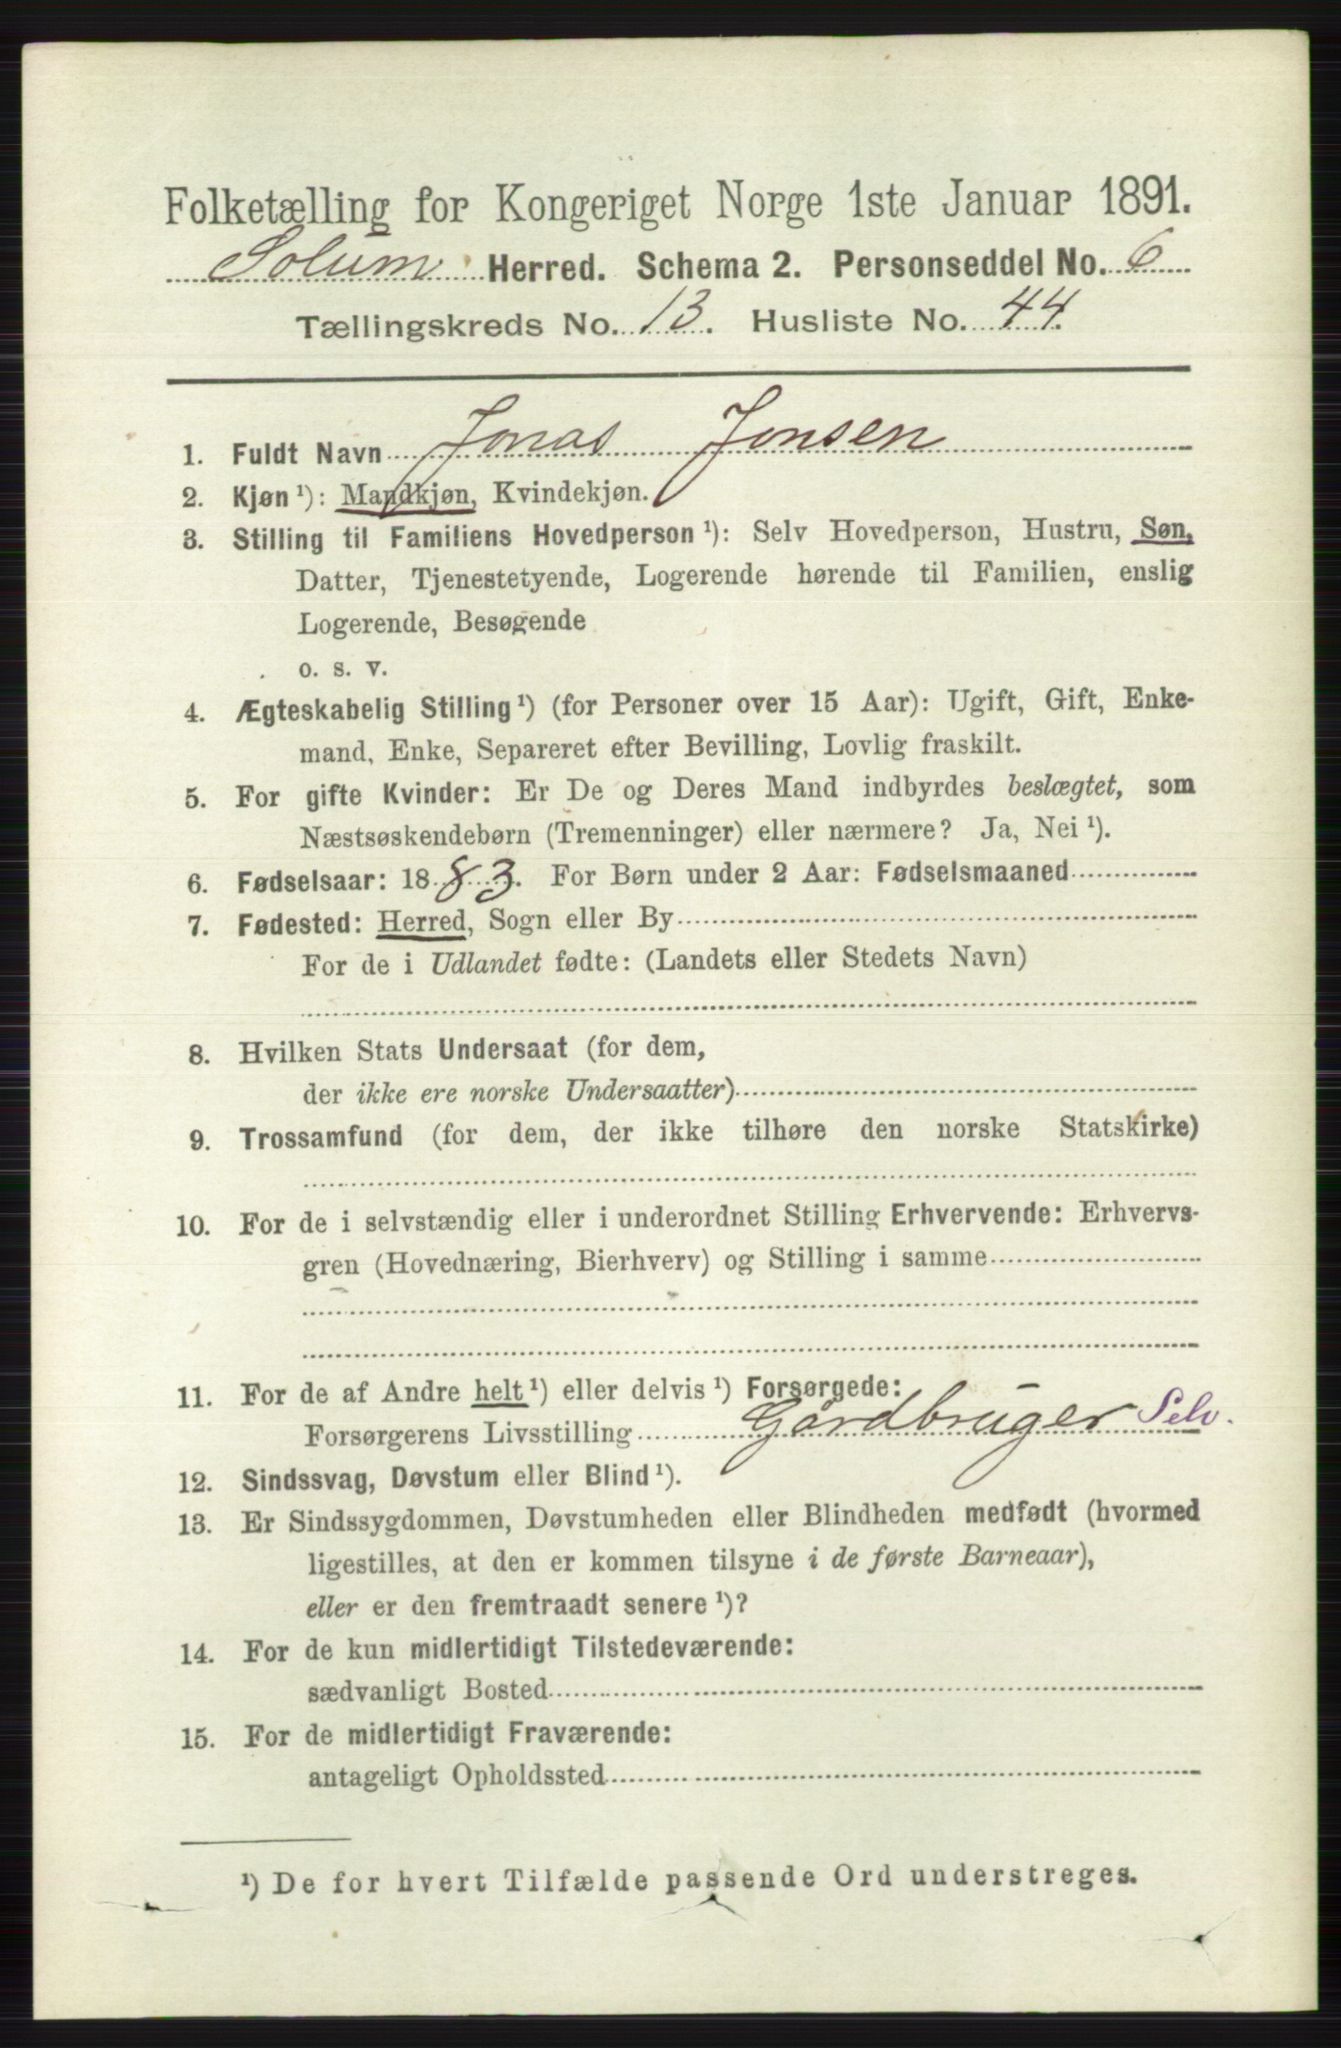 Folketælling for Kongeriget Norge 1ste Januar 1891.
Solum Herred. Schema 2. Personseddel No. 6
Tællingskreds No. 13. Husliste No. 44.
1. Fuldt Navn Jonas Jonsen
2. Kjøn ¹): Mandkjøn, Kvindekjøn.
3. Stilling til Familiens Hovedperson ¹): Selv Hovedperson, Hustru, Søn,
Datter, Tjenestetyende, Logerende hørende til Familien, enslig
Logerende, Besøgende
o. s. v.
4. Ægteskabelig Stilling ¹) (for Personer over 15 Aar): Ugift, Gift, Enke-
mand, Enke, Separeret efter Bevilling, Lovlig fraskilt.
5. For gifte Kvinder: Er De og Deres Mand indbyrdes beslægtet, som
Næstsøskendebørn (Tremenninger) eller nærmere? Ja, Nei ¹).
6. Fødselsaar: 1883. For Børn under 2 Aar: Fødselsmaaned
7. Fødested: Herred, Sogn eller By
For de i Udlandet fødte: (Landets eller Stedets Navn)
8. Hvilken Stats Undersaat (for dem,
der ikke ere norske Undersaatter)
9. Trossamfund (for dem, der ikke tilhøre den norske Statskirke)
10. For de i selvstændig eller i underordnet Stilling Erhvervende: Erhvervs-
gren (Hovednæring, Bierhverv) og Stilling i samme
11. For de af Andre helt ¹) eller delvis ¹) Forsørgede:
Forsørgerens Livsstilling Gårdbruger Selv.
12. Sindssvag, Døvstum eller Blind ¹).
13. Er Sindssygdommen, Døvstumheden eller Blindheden medfødt (hvormed
ligestilles, at den er kommen tilsyne i de første Barneaar),
eller er den fremtraadt senere ¹)?
14. For de kun midlertidigt Tilstedeværende:
sædvanligt Bosted
15. For de midlertidigt Fraværende:
antageligt Opholdssted
¹) De for hvert Tilfælde passende Ord understreges.